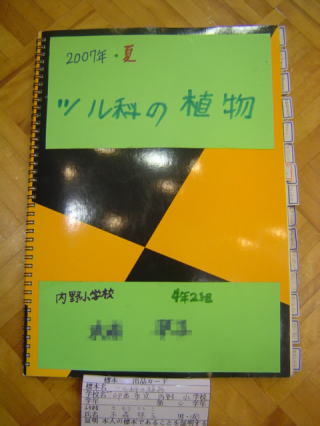 2007年・夏
ツル科の植物
内野小学校
4年2組
標本 出品カード
標本名
学校名
小学校
学年
氏名
男・女
証明 本人の標本であることを証明する